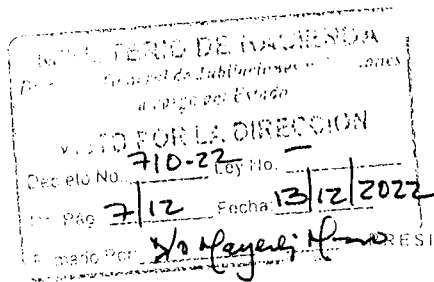 MINISTERIO DE HACIENDA
General de Jubilaciones
a cargo del Estado
VISTO POR LA DIRECCION
Decreto No. 710-22 Ley No. —
Pág. 7/12 Fecha: 13/12/2022
Firmado Por:
RESI